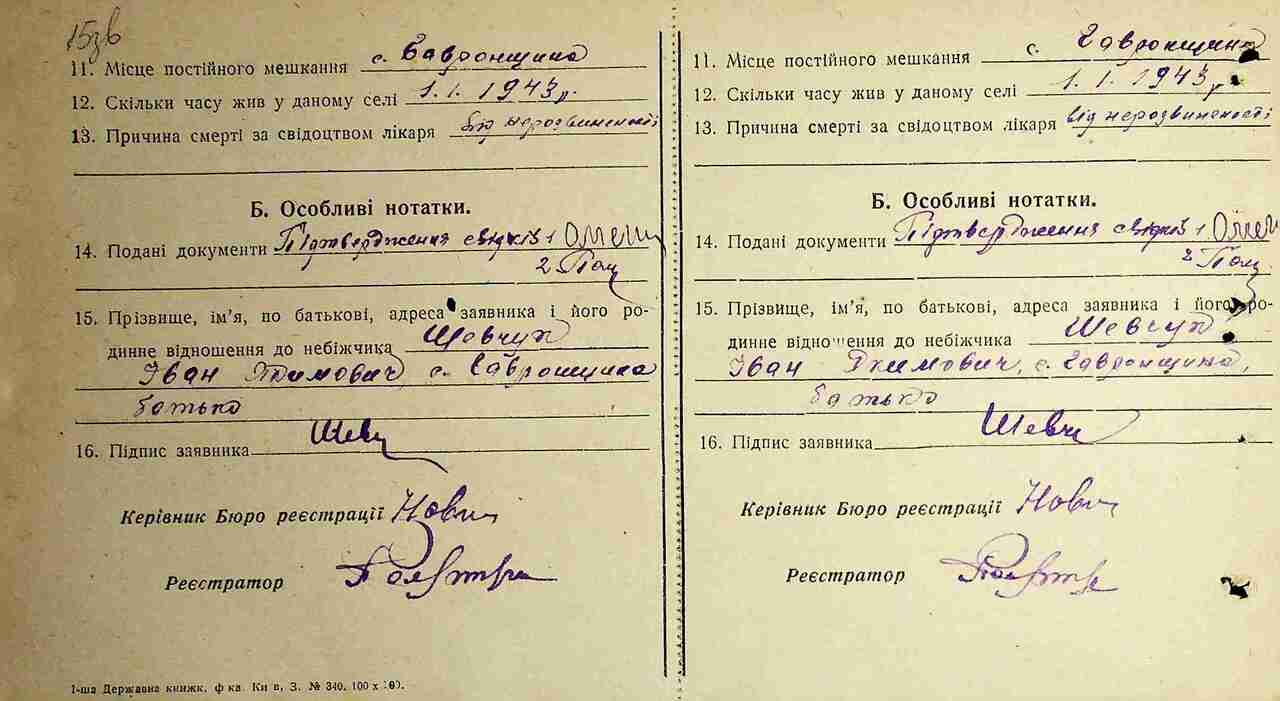 15зв
11. Місце постійного мешкання с. Гавронщина
12. Скільки часу жив у даному селі 1.1.1943 р.
13. Причина смерті за свідоцтвом лікаря від нерозвиненості
Б. Особливі нотатки.
14. Подані документи Підтвердження свідків 1
2
15. Прізвище, ім’я, по батькові, адреса заявника і його ро-
динне відношення до небіжчика Шевчук
Іван Якимович с. Гавронщина
батько
16. Підпис заявника Шевч
Керівник Бюро реєстрації
Реєстратор
1-ша Державна книжк. ф-ка. Київ, З. № 340. 100 х
11. Місце постійного мешкання с. Гавронщина
12. Скільки часу жив у даному селі 1.1.1943 р.
13. Причина смерті за свідоцтвом лікаря від нерозвиненості
Б. Особливі нотатки.
14. Подані документи Підтвердження свідків 1
2
15. Прізвище, ім’я, по батькові, адреса заявника і його ро-
динне відношення до небіжчика Шевчук
Іван Якимович, с. Гавронщина,
батько
16. Підпис заявника Шевч
Керівник Бюро реєстрації
Реєстратор